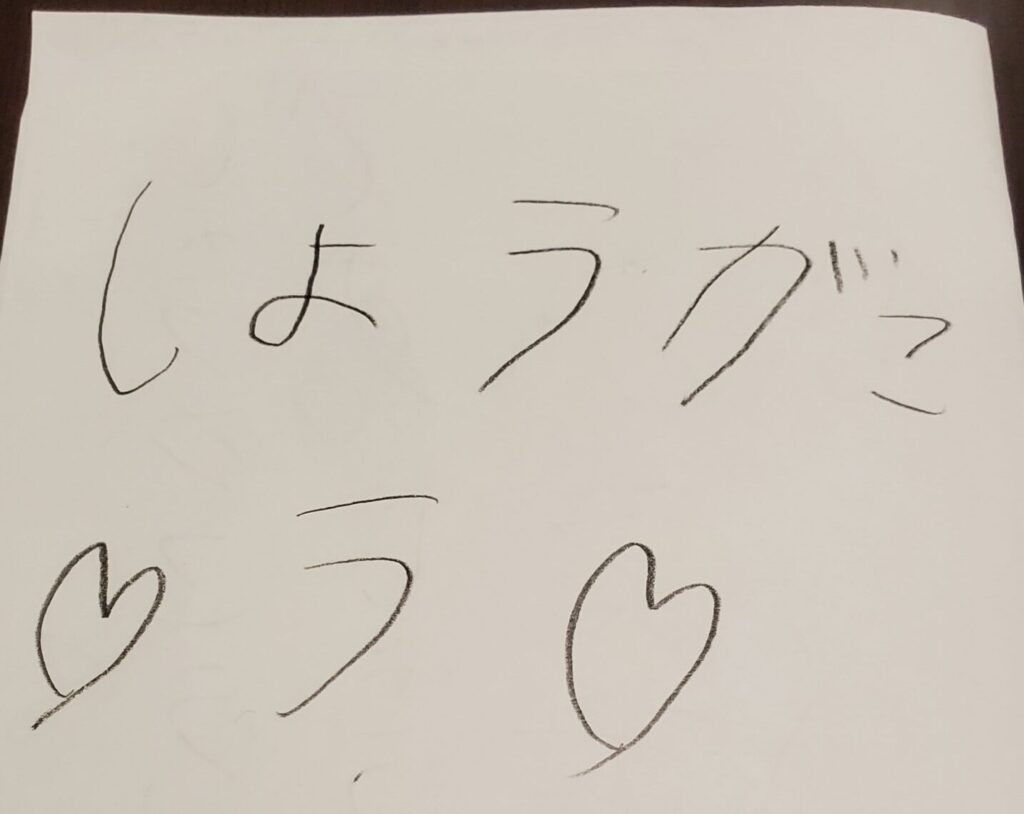 しようがこ
♡う♡